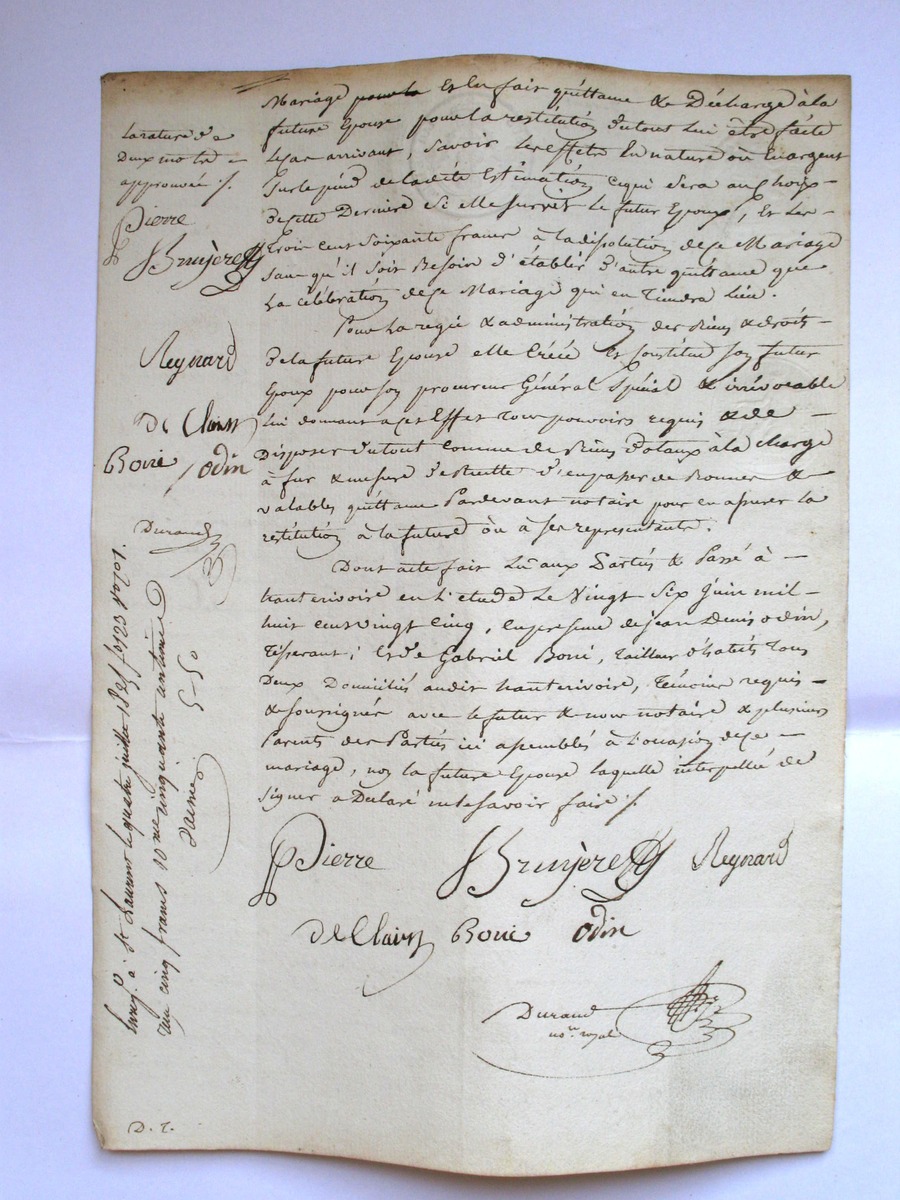 Mariage pour la Est luy fair quittance & Décharge à la
future Epouse pour la restitution du tout lui être faite
le cas arrivant, savoir les effets En nature où En argent
sur le pied de ladite Estimation ce qui sera au choix
de cette Derniere si elle survit le futur Epoux, Et les
trois cent soixante francs à la disolution de ce Mariage
sans qu'il soit Besoin d'établir d'autre quittance que
la célébration de ce Mariage qui en tiendra lieu.
Pour la regie & administration des Biens & droits
de la future Epouse elle Créée Et Constitue son futur
Epoux pour son procureur Général spécial & irrévocable
lui donnant a ces Effets tous pouvoirs requis & de
Disposer du tout comme de Biens Dotaux à la charge
à fur & mesure de recette d'en passer de Bonnes &
valables quittances Pardevant notaire pour en assurer la
restitution à la future où à ses representants.
Dont acte fait lû aux Parties & Passé à
hauterivoire en l'etude Le Vingt Six Juin mil
huit cent vingt Cinq, En presence de jean Denis odin,
tisserant, Et de Gabriel Boné, tailleur d'habits tous
Deux Domiciliés audit hauterivoire, témoins requis
& soussignés avec le futur & nous notaire & plusieurs
Parents des Parties ici assemblés à l'occasion de ce
mariage, non la future Epouse laquelle interpellée de
signer a Déclaré ne le savoir faire /.
Pierre Bruyere Reynard
De Clairst Boné odin
Durand
nore. royal
La rature de
Deux mots
approuvée /.
Pierre
Bruyere
Reynard
De Clairst
Boné odin
Durand
Enregé. à St Laurent le quatre juillet 1825 fo 123
cinq francs 10me cinquante centimes
5-50
D. T.